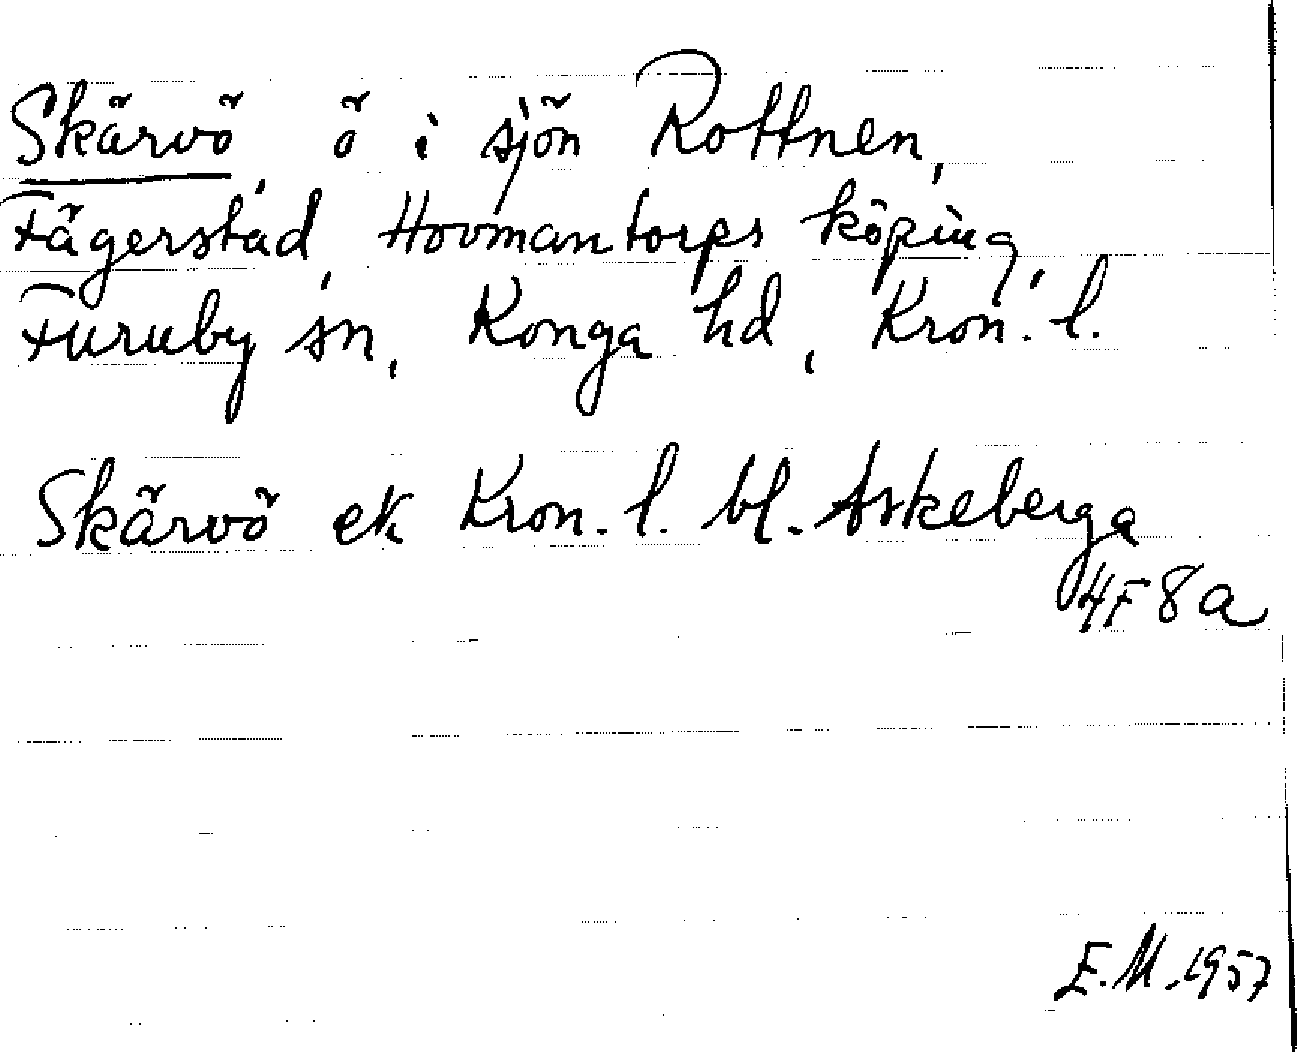 Skärvö, ö i sjön Rottnen,
Fägerstad, Hovmantorps köping,
Furuby sn, Konga hd, Kron. l.
Skärvö ek Kron. l. bl. Askeberga
4F8a
E.M. 1957